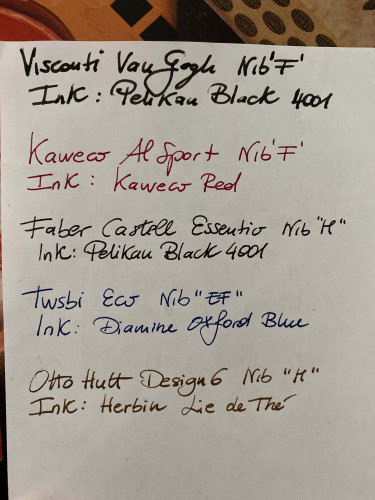 Visconti Van Gogh Nib 'F'
Ink: Pelikan Black 4001
Kaweco Al Sport Nib 'F'
Ink: Kaweco Red
Faber Castell Essentio Nib "M"
Ink: Pelikan Black 4001
Twsbi Eco Nib "EF"
Ink: Diamine Oxford Blue
Otto Hutt Design 6 Nib "M"
Ink: Herbin Lie de Thé